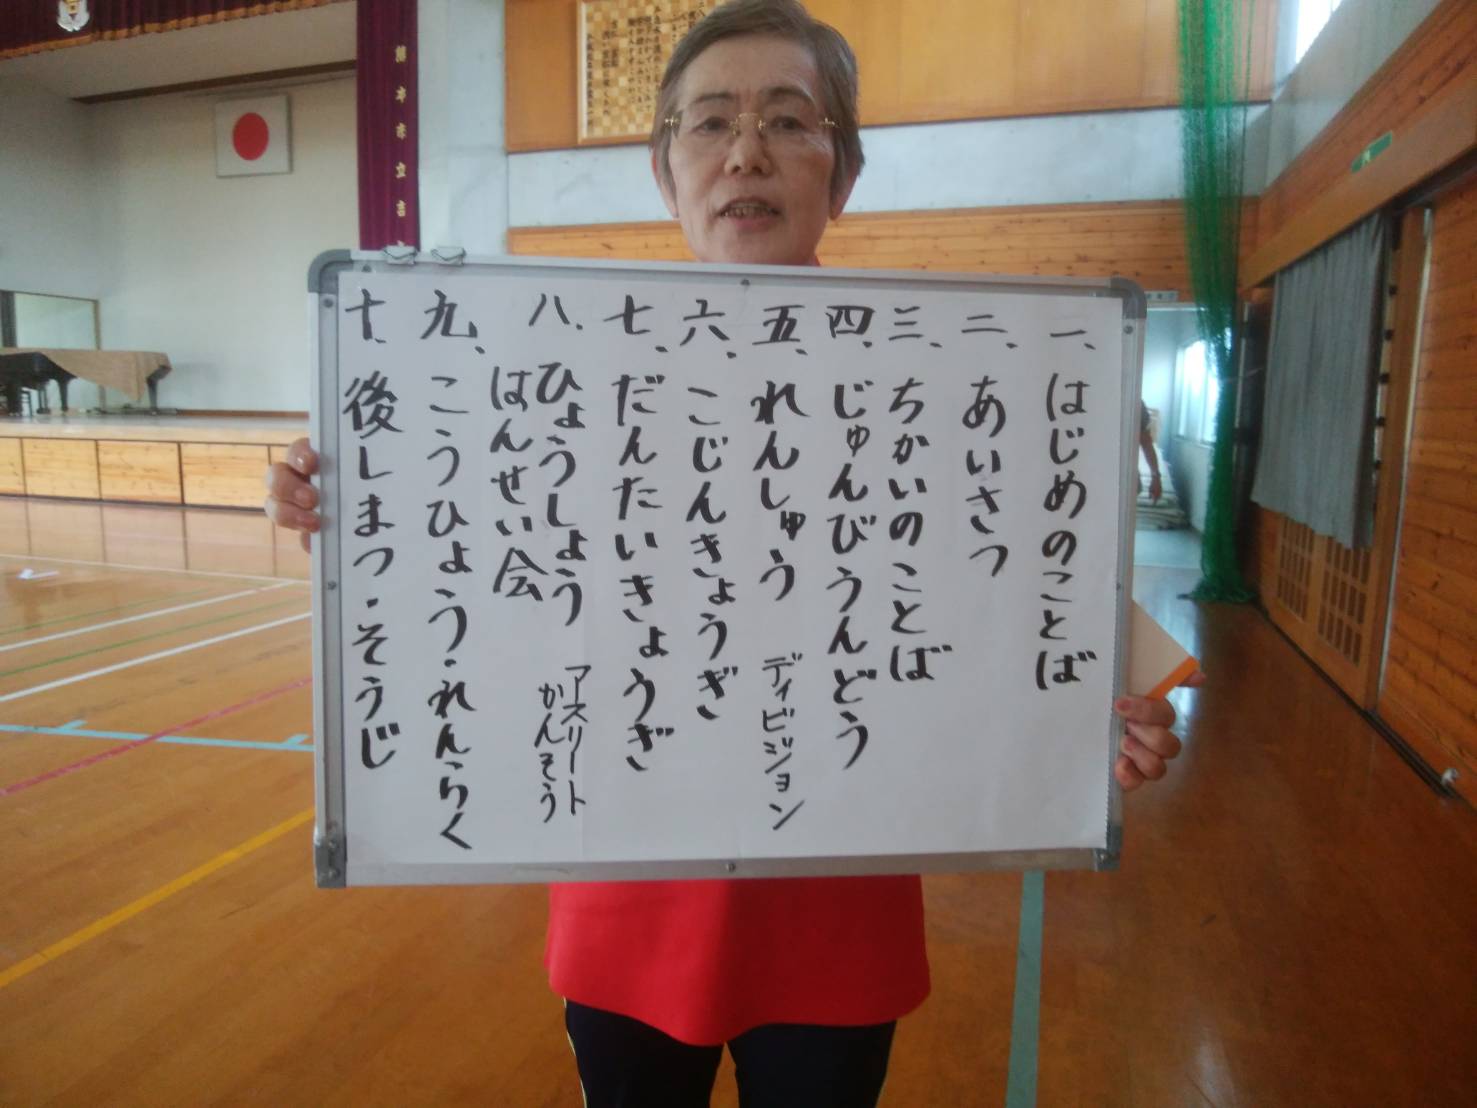 一、はじめのことば
二、あいさつ
三、ちかいのことば
四、じゅんびうんどう
五、れんしゅう ディビジョン
六、こじんきょうぎ
七、だんたいきょうぎ
八、ひょうしょう アースリート
はんせい会 かんそう
九、こうひょう・れんらく
十、後しまつ・そうじ
熊本市立